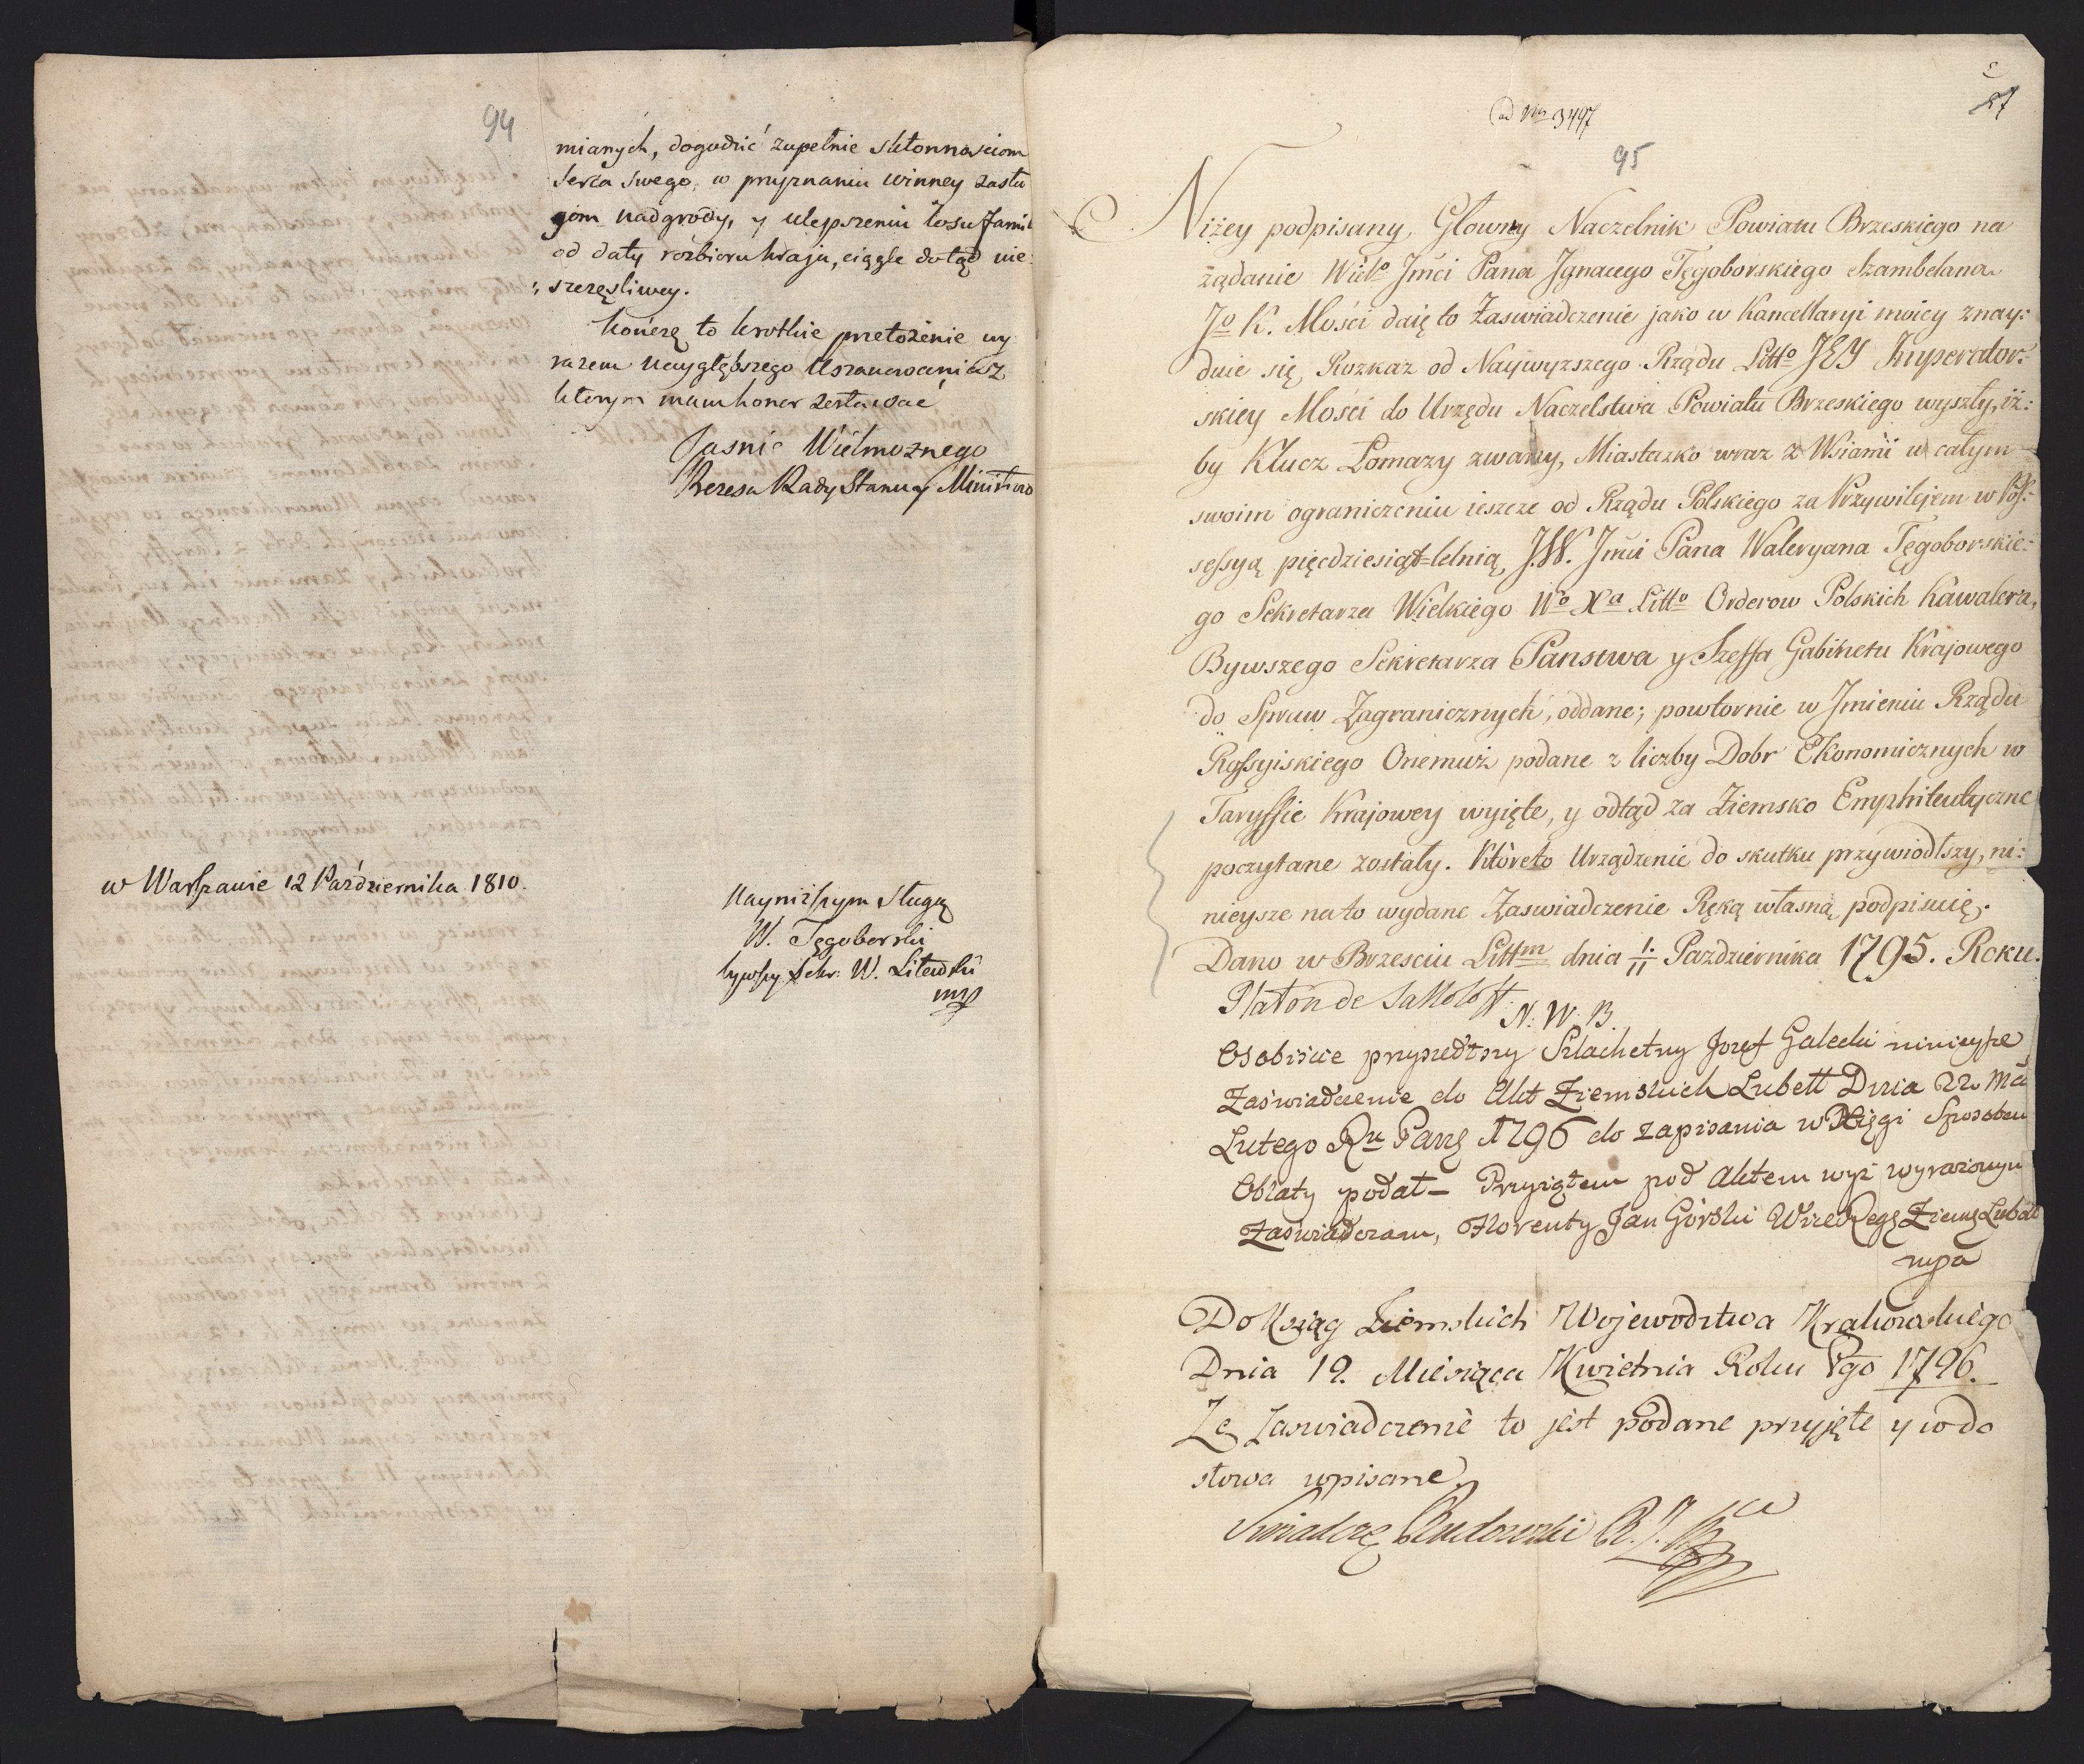 94
mianych, dogodzić zupełnie skłonnosciom
serca swego, w przyznaniu winney zasłu
gom nadgrody, y ulepszeniu losu familii
od daty rozbioru kraju, ciągle dotąd nie:
:szczęsliwey.
Kończę to krotkie przełożenie wy
razem naygłębszego Uszanowania z
ktorym mam honor zostawać
Jasnie Wielmoznego
Prezesa Rady Stanu y Ministrow
w Warszawie 12 Października 1810.
Nayniższym sługą
W. Tęgoborski
bywszy Sekr: W. Litewski
mp
ad Nrm 3497
95
Niżey podpisany, Głowny Naczelnik Powiatu Brzeskiego na
żądanie Wielo Jmci Pana Jgnacego Tęgoborskiego Szambelana
Jo K. Mości daię to Zaswiadczenie jako w Kancellaryi moiey znay:
duie się, Rozkaz od Naywyzszego Rządu Litto JEY Imperator:
skiey Mości do Urzędu Naczelstwa Powiatu Brzeskiego wyszły, iż:
by Klucz Łomazy zwany, Miastazko wraz z Wsiami w całym
swoim ograniczeniu ieszcze od Rządu Polskiego za Przywilejem w Pos:
sessyą pięcdziesiąt=letnią, J.W. Jmci Pana Waleryana Tęgoborskie:
go Sekretarza Wielkiego Wo Xa Litto Orderow Polskich Kawalera,
Bywszego Sekretarza Panstwa y Szeffa Gabinetu Krajowego
do Spraw Zagranicznych, oddane; powtornie w Jmieniu Rządu
Rossyiskiego Onemuż podane z liczby Dobr Ekonomicznych w
Taryffie Krajowey wyięte, y odtąd za Ziemsko Emphiteutyczne
poczytane zostały. Któreto Urządzenie do skutku przywiodłszy, ni:
nieysze na to wydane Zaswiadczenie Ręką własną podpisuię.
Dano w Brzesciu Littm dnia 1/11 Pazdziernika 1795. Roku.
Platon de Sakoloff
N. W. B.
Osobiscie przyszedłszy Szlachetny Jozef Galecki ninieysze
Zaświadczenie do Akt Ziemskich Lubell Dnia 22. Mca
Lutego Ru Pang 1796 do zapisania w Xięgi Sposobem
Oblaty podał – Przyiąłem pod Aktem wyż wyrażonym
Zaświadczam, Florenty Jan Górski Wice Reg Ziemg Lubel
mpa
Do Ksiąg Ziemskich Wojewodztwa Krakowskiego
Dnia 19. Miesiąca Kwietnia Roku Pgo 1796.
Ze Zaswiadczenie to jest podane przyjęte y w do
słowa wpisane.
Swiadczę